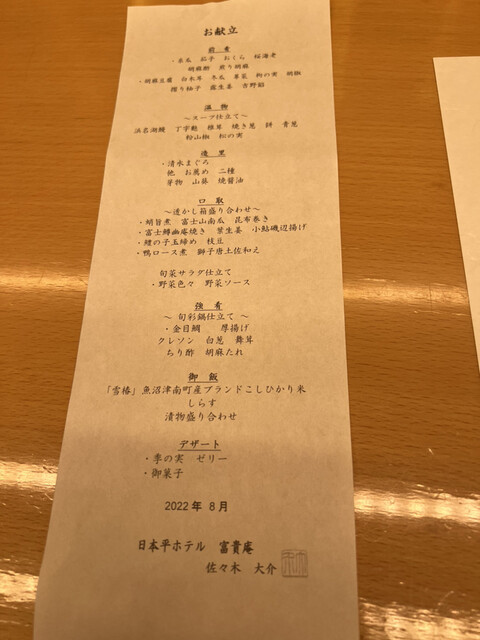 お献立
前菜
・糸瓜 茄子 おくら 桜海老
胡麻酢 煎り胡麻
・胡麻豆腐 白木耳 冬瓜 枸杞の実 胡椒
摺り柚子 露生姜 吉野餡
温物
～スープ仕立て～
浜名湖鰻 丁字麩 椎茸 焼き葱 餅 青葱
粉山椒 松の実
造里
・清水まぐろ
他 お薦め 二種
芽物 山葵 焼醤油
口取
～透かし箱盛り合わせ～
・蛸旨煮 富士山南瓜 昆布巻き
・富士鱒幽庵焼き 葉生姜 小鮎磯辺揚げ
・鱧の子玉締め 枝豆
・鴨ロース煮 獅子唐土佐和え
旬菜サラダ仕立て
・野菜色々 野菜ソース
強肴
～ 旬彩鍋仕立て ～
・金目鯛 厚揚げ
クレソン 白葱 舞茸
ちり酢 胡麻たれ
御飯
「雪椿」魚沼津南町産ブランドこしひかり米
しらす
漬物盛り合わせ
デザート
・季の実 ゼリー
・御菓子
2022年 8月
日本平ホテル 富貴庵
佐々木 大介